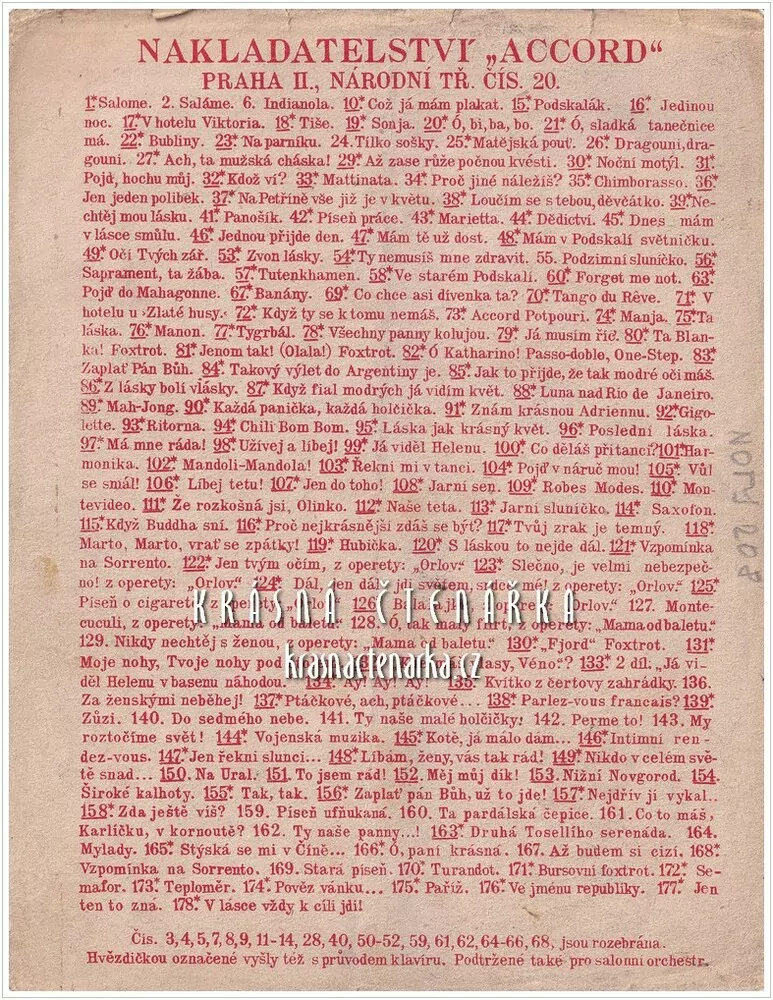 NAKLADATELSTVÍ „ACCORD“
PRAHA II., NÁRODNÍ TŘ. ČÍS. 20.
1* Salome. 2. Saláme. 6. Indianola. 10* Což já mám plakat. 15* Podskalák. 16* Jedinou
noc. 17* V hotelu Viktoria. 18* Tiše. 19* Sonja. 20* Ó, bi, ba, bo. 21* Ó, sladká tanečnice
má. 22* Bubliny. 23* Na parníku. 24. Tilko sošky. 25* Matějská pouť. 26* Dragouni, dra-
gouni. 27* Ach, ta mužská cháska! 29* Až zase růže počnou kvésti. 30* Noční motýl. 31*
Pojď, hochu můj. 32* Kdož ví? 33* Mattinata. 34* Proč jiné náležíš? 35* Chimborasso. 36*
Jen jeden polibek. 37* Na Petříně vše již je v květu. 38* Loučím se s tebou, děvčátko. 39* Ne-
chtěj mou lásku. 41* Panošík. 42* Píseň práce. 43* Marietta. 44* Dědictví. 45* Dnes mám
v lásce smůlu. 46* Jednou přijde den. 47* Mám tě už dost. 48* Mám v Podskalí světničku.
49* Očí Tvých zář. 53* Zvon lásky. 54* Ty nemusíš mne zdravit. 55. Podzimní sluníčko. 56*
Saprament, ta žába. 57* Tutenkhamen. 58* Ve starém Podskalí. 60* Forget me not. 63*
Pojď do Mahagonne. 67* Banány. 69* Co chce asi dívenka ta? 70* Tango du Rêve. 71* V
hotelu u ›Zlaté husy.‹ 72* Když ty se k tomu nemáš. 73* Accord Potpouri. 74* Manja. 75* Ta
láska. 76* Manon. 77* Tygrbál. 78* Všechny panny kolujou. 79* Já musím říc. 80* Ta Blan-
ka! Foxtrot. 81* Jenom tak! (Olala!) Foxtrot. 82* Ó Katharino! Passo-doble, One-Step. 83*
Zaplať Pán Bůh. 84* Takový výlet do Argentiny je. 85* Jak to přijde, že tak modré oči máš.
86* Z lásky bolí vlásky. 87* Když fial modrých já vidím květ. 88* Luna nad Rio de Janeiro.
89* Mah-Jong. 90* Každá panička, každá holčička. 91* Znám krásnou Adriennu. 92* Gigo-
lette. 93* Ritorna. 94* Chili Bom Bom. 95* Láska jak krásný květ. 96* Poslední láska.
97* Má mne ráda! 98* Užívej a líbej! 99* Já viděl Helenu. 100* Co děláš při tanci? 101* Har-
monika. 102* Mandoli-Mandola! 103* Řekni mi v tanci. 104* Pojď v náruč mou! 105* Vůl
se smál! 106* Líbej tetu! 107* Jen do toho! 108* Jarní sen. 109* Robes Modes. 110* Mon-
tevideo. 111* Že rozkošná jsi, Olinko. 112* Naše teta. 113* Jarní sluníčko. 114* Saxofon.
115* Když Buddha sní. 116* Proč nejkrásnější zdáš se být? 117* Tvůj zrak je temný. 118*
Marto, Marto, vrať se zpátky! 119* Hubička. 120* S láskou to nejde dál. 121* Vzpomínka
na Sorrento. 122* Jen tvým očím, z operety: „Orlov.“ 123* Slečno, je velmi nebezpeč-
no! z operety: „Orlov.“ 124* Dál, jen dál, jdi světem, srdce mé! z operety: „Orlov.“ 125*
Píseň o cigaretě, z operety „Orlov.“ 126* operety: „Orlov.“ 127. Monte-
cuculi, z operety: „Mama od baletu.“ 128. Ó, tak malý flirt, z operety: „Mama od baletu.“
129. Nikdy nechtěj s ženou, z operety: „Mama od baletu.“ 130* „Fjord“ Foxtrot. 131*
Moje nohy, Tvoje nohy pod Véno“? 133* 2 díl. „Já vi-
děl Helenu v basenu náhodou. 134* Ay! Ay! Ay! 135* Kvítko z čertovy zahrádky. 136.
Za ženskými neběhej! 137* Ptáčkové, ach, ptáčkové... 138* Parlez-vous francais? 139*
Zůzi. 140. Do sedmého nebe. 141. Ty naše malé holčičky. 142. Perme to! 143. My
roztočíme svět! 144* Vojenská muzika. 145* Kotě, já málo dam... 146* Intimní ren-
dez-vous. 147* Jen řekni slunci... 148* Líbám, ženy, vás tak rád! 149* Nikdo v celém svě-
tě snad... 150. Na Ural. 151. To jsem rád! 152. Měj můj dík! 153. Nižní Novgorod. 154.
Široké kalhoty. 155* Tak, tak. 156* Zaplať pán Bůh, už to jde! 157* Nejdřív jí vykal..
158* Zda ještě víš? 159. Píseň ufňukaná. 160. Ta pardálská čepice. 161. Co to máš,
Karlíčku, v kornoutě? 162. Ty naše panny...! 163* Druhá Toselliho serenáda. 164.
Mylady. 165* Stýská se mi v Číně... 166* Ó, paní krásná. 167. Až budem si cizí. 168*
Vzpomínka na Sorrento. 169. Stará píseň. 170* Turandot. 171* Bursovní foxtrot. 172* Se-
mafor. 173* Teploměr. 174* Pověz vánku... 175* Paříž. 176* Ve jménu republiky. 177* Jen
ten to zná. 178* V lásce vždy k cíli jdi!
Čís. 3,4,5,7,8,9, 11-14, 28, 40, 50-52, 59, 61, 62, 64-66, 68, jsou rozebrána.
Hvězdičkou označené vyšly též s průvodem klavíru. Podtržené také pro salonní orchestr.
NOTY 208
KRÁSNÁ ČTENÁŘKA
krasnactenarka.cz